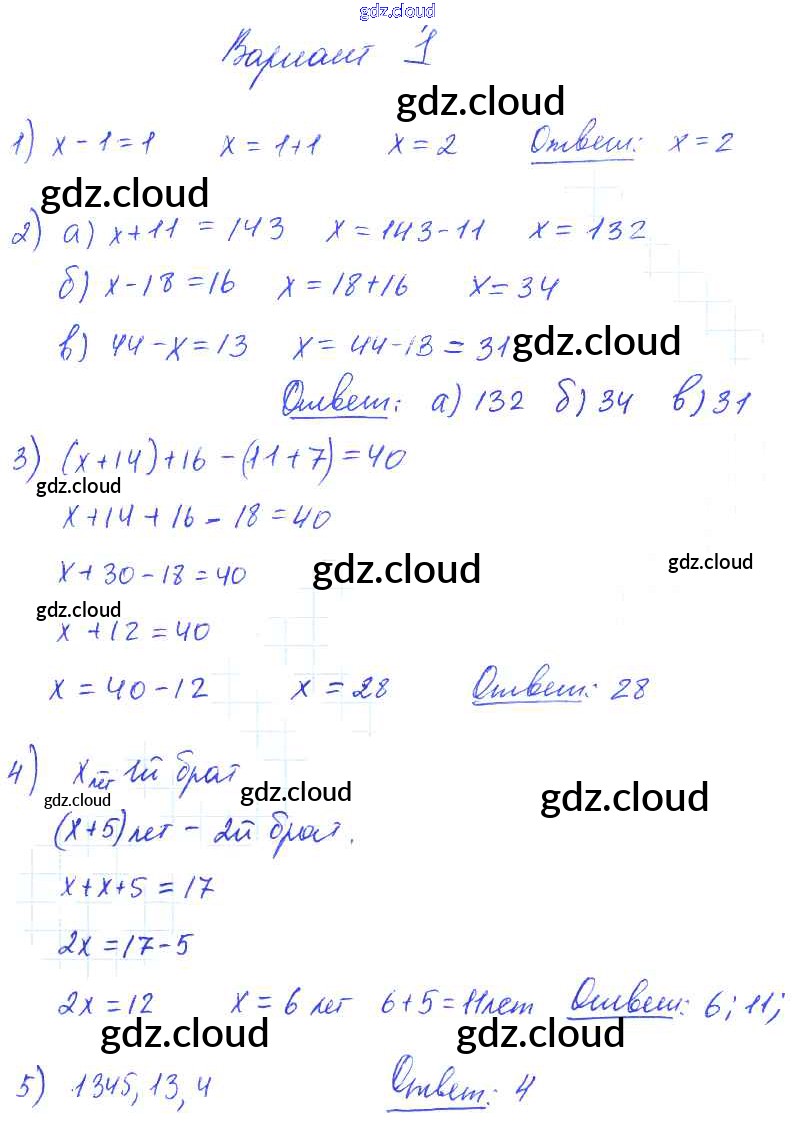 gdz.cloud
Вариант 1
gdz.cloud
1) x - 1 = 1 x = 1+1 x = 2 Ответ: x = 2
gdz.cloud
2) а) x+11 = 143 x = 143-11 x = 132
б) x-18 = 16 x = 18+16 x = 34
в) 44-x = 13 x = 44-13 = 31 gdz.cloud
Ответ: а) 132 б) 34 в) 31
3) (x+14)+16-(11+7)=40
gdz.cloud
x+14+16-18=40
gdz.cloud
x+30-18=40 gdz.cloud
gdz.cloud
x+12=40
x = 40-12 x = 28 Ответ: 28
4) x лет 1й брат
gdz.cloud gdz.cloud gdz.cloud
(x+5) лет - 2й брат.
x+x+5 = 17
2x = 17-5
2x = 12 x = 6 лет 6+5 = 11 лет Ответ: 6; 11;
gdz.cloud gdz.cloud
5) 1345, 13, 4 Ответ: 4